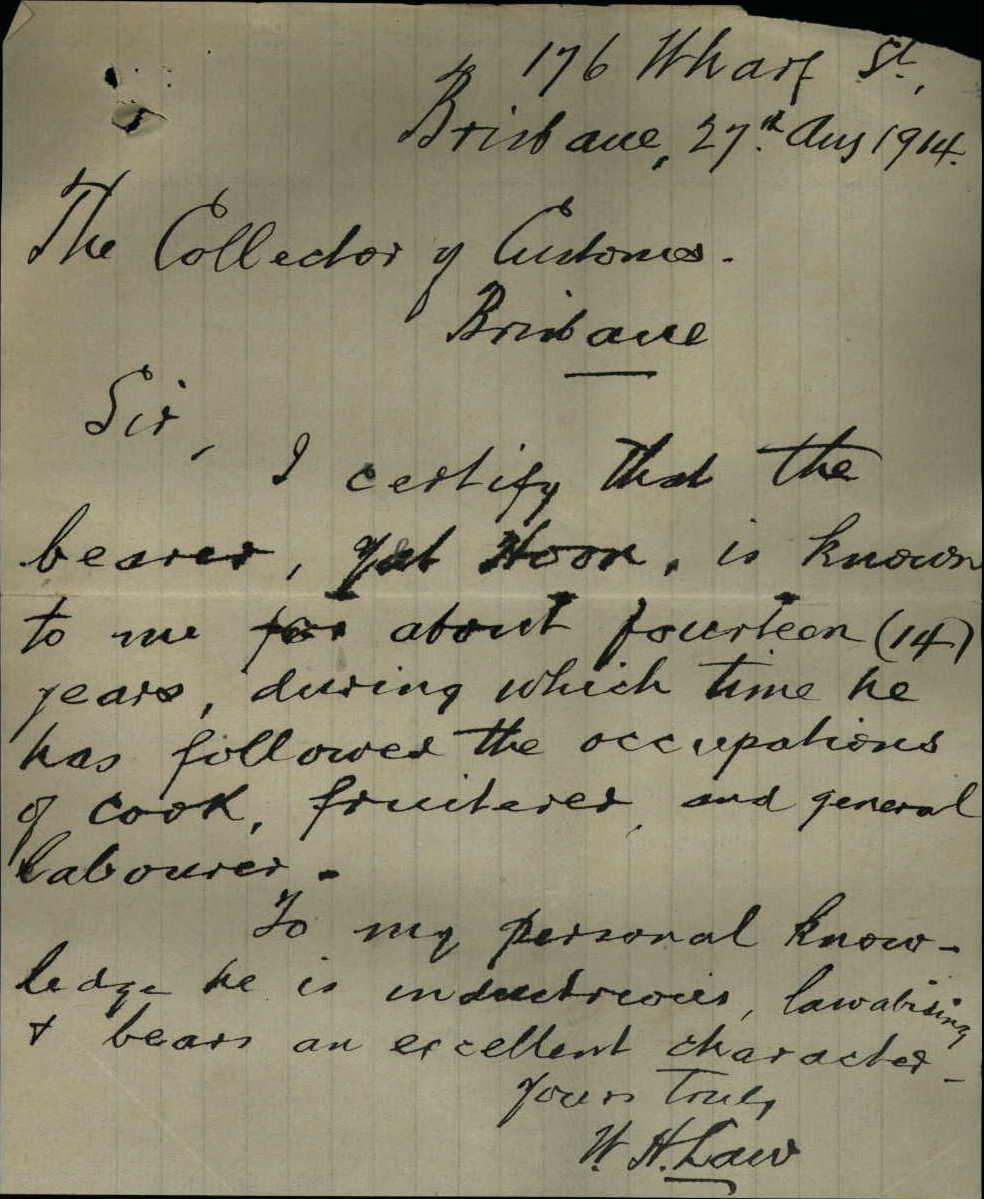 176 Wharf St,
Brisbane, 27th. Aug 1914.
The Collector of Customs.
Brisbane
Sir,
I certify that the
bearer, Yet Hoon, is known
to me for about fourteen (14)
years, during which time he
has followed the occupations
of cook, fruiterer, and general
labourer.
To my personal know-
ledge he is industrious, lawabiding
& bears an excellent character
Yours Truly
W. H. Law